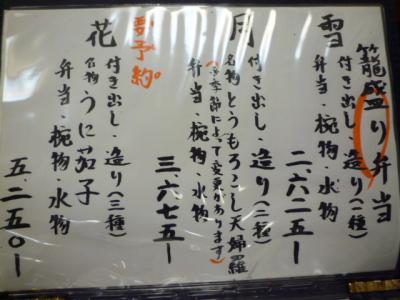 籠盛り弁当
雪
付き出し・造り(二種)
弁当・椀物・水物
二、六二五ー
月
付き出し・造り(三種)
名物とうもろこし天婦羅
(季節によって変更があります)
弁当・椀物・水物
三、六七五ー
要予約。
花
付き出し・造り(三種)
名物うに茄子
弁当・椀物・水物
五、二五〇ー